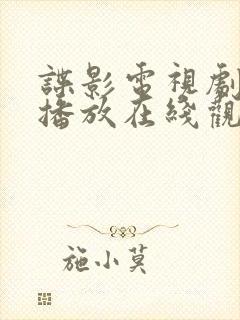 諜影電視劇
播放在綫觀
施小莫